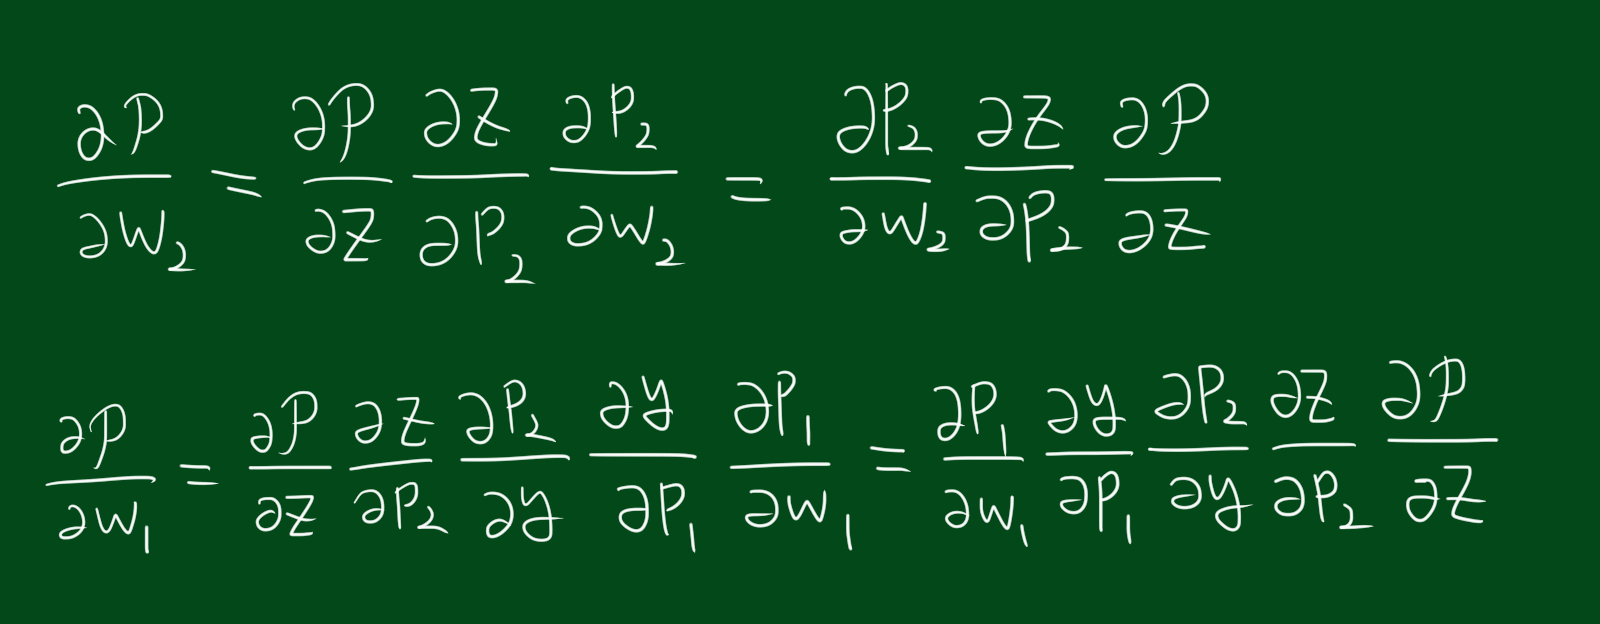 ∂P/∂W₂ = ∂P/∂Z ∂Z/∂P₂ ∂P₂/∂W₂ = ∂P₂/∂W₂ ∂Z/∂P₂ ∂P/∂Z
∂P/∂W₁ = ∂P/∂Z ∂Z/∂P₂ ∂P₂/∂y ∂y/∂P₁ ∂P₁/∂W₁ = ∂P₁/∂W₁ ∂y/∂P₁ ∂P₂/∂y ∂Z/∂P₂ ∂P/∂Z